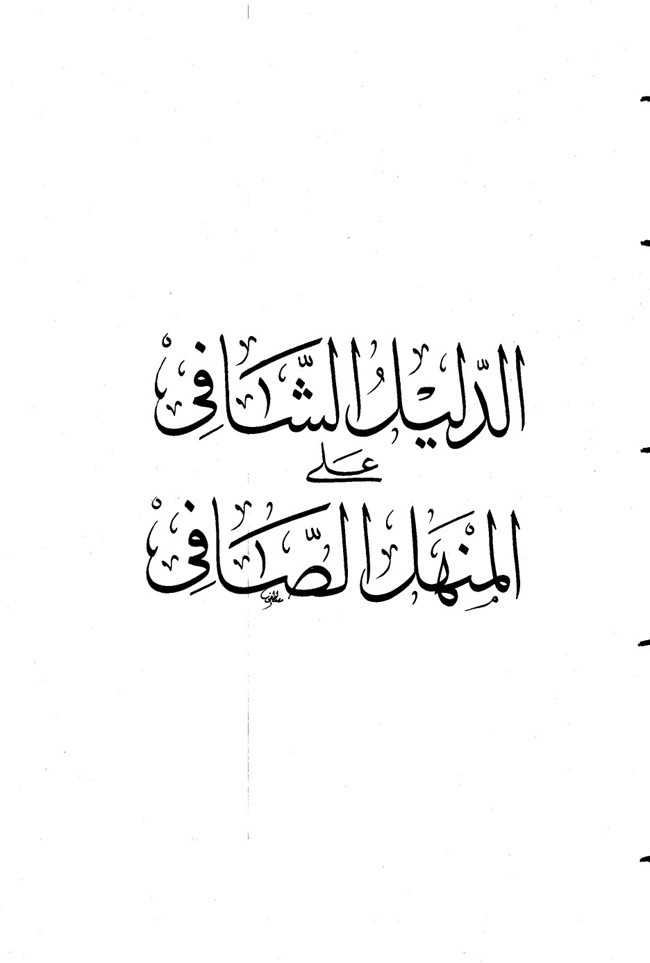 الدَّلِيْلُ الشَّافِي
عَلى
المَنْهَل الصَّافِي